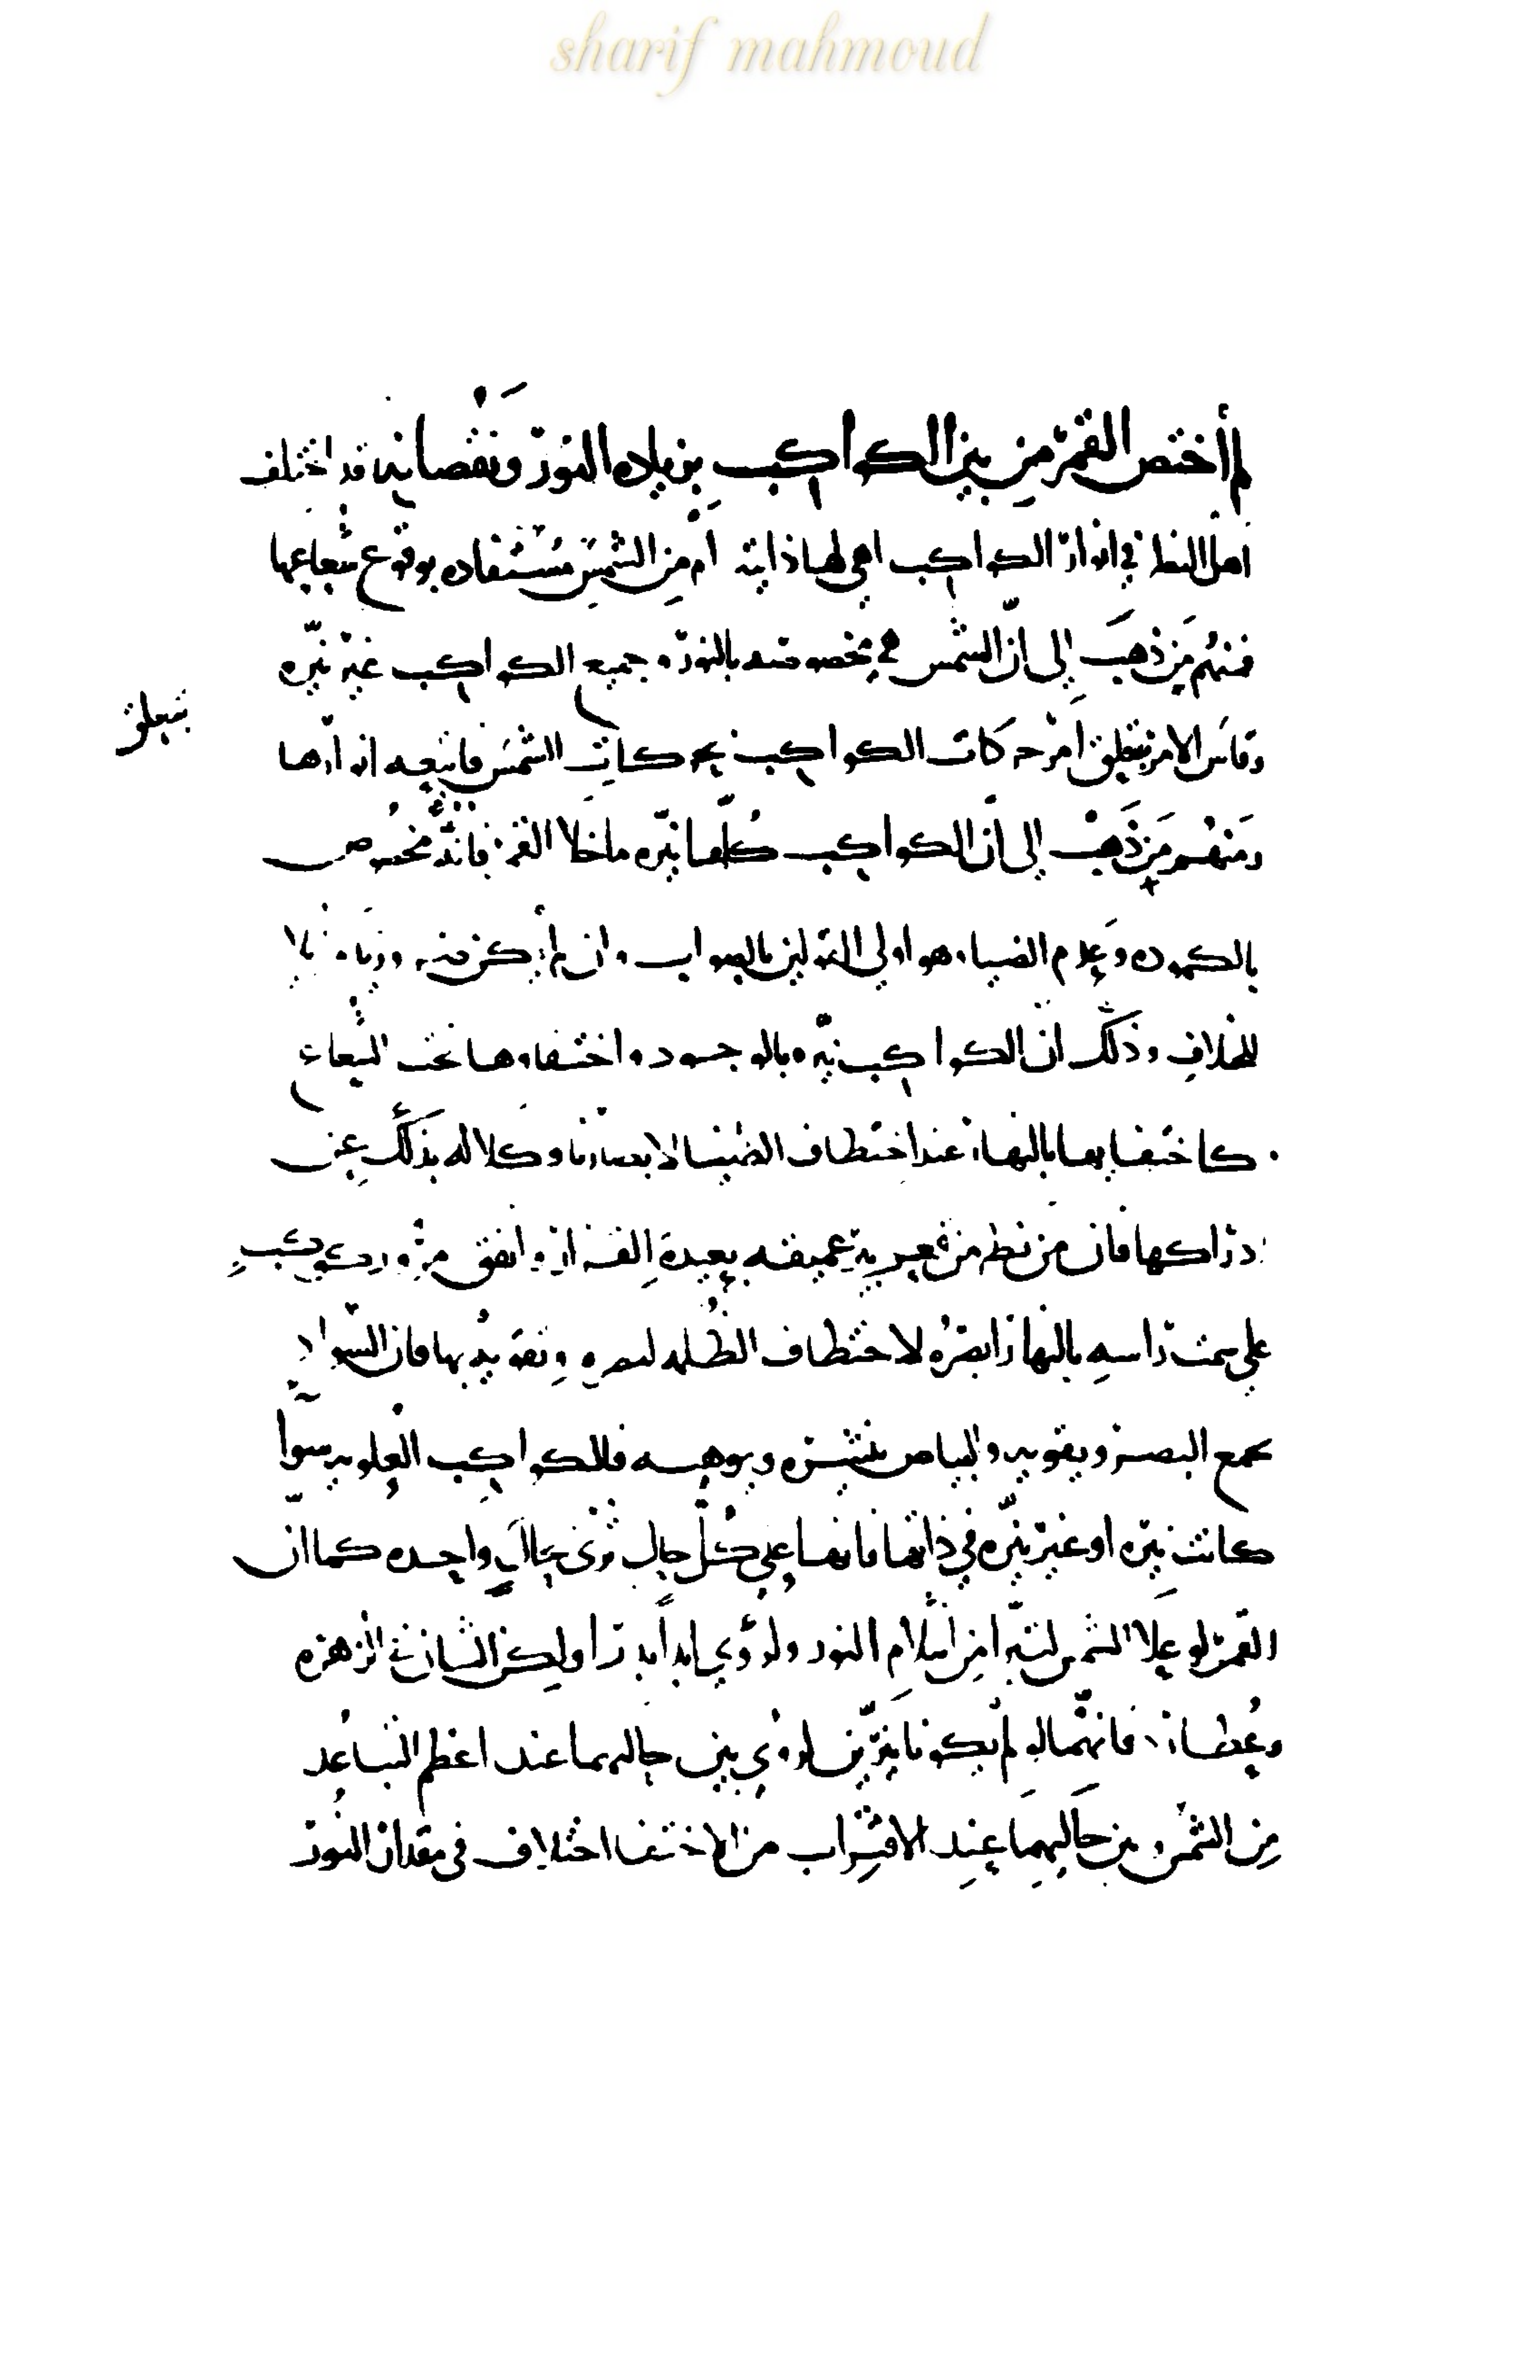 sharif mahmoud
لم اختص القمر من بين الكواكب بزياده النور ونقصانه قد اختلف
اهل النظر في انوار الكواكب اهي لها ذاتيه ام من الشمس مستفاده بوقوع شعاعها
فمنهم من ذهب الى ان الشمس هي مخصوصه بالنور وجميع الكواكب غير نيره
وقاس الامر بتعلق امر حركات الكواكب بحركات الشمس فاتبعه انوارها
بتعلق
ومنهم من ذهب الى ان الكواكب كلها نيره ما خلا القمر فانه مخصوص
بالكموده وعدم الضياء وهو اولى القولين بالصواب وان لم
للخلاف وذلك ان الكواكب نيره بالوجود واختفاوها تحت الشعاع
كاختفايها بالنهار عند اختطاف الضيا لابصارنا وكلاله بذلك عن
ادراكها فان من نظر من قعر بير عميقه بعيده القرار واتفق مرور كوكب
على سمت راسه بالنهار ابصره لاختطاف الظلمه لبصره وتقويته بها فان السواد
يجمع البصر ويقويه والبياض ينشره ويوهيه فللكواكب العلويه سوآ
كانت نيره او غير نيره في ذاتها فانها على كل حال ترى بحال واحده كما ان
القمر لو علا الشمس لتبرا من انثلام النور ولرؤي ابدا بدرا ولكن الشان في الزهره
وعطارد فانهما لو لم يكونا نيرين لرؤي بين حاليهما عند اعظم التباعد
من الشمس وبين حاليهما عند الاقتراب من الاختفا اختلاف في مقدار النور